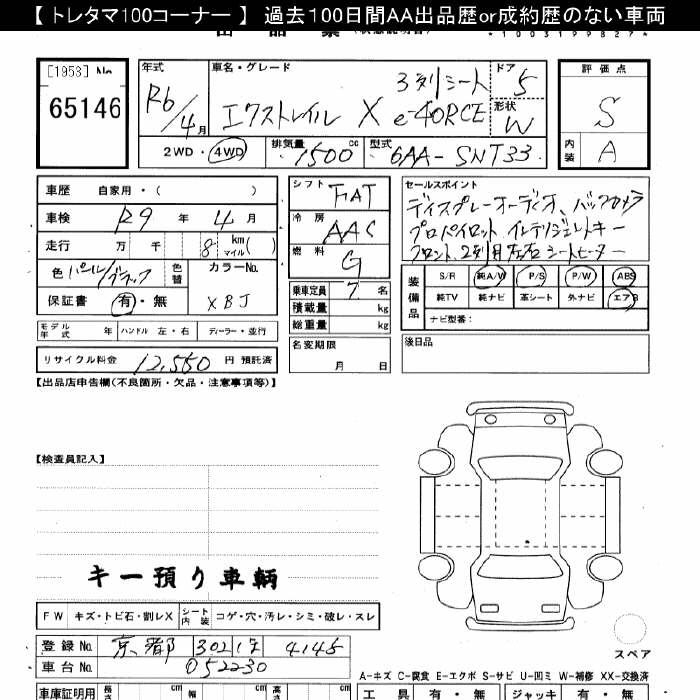 【 トレタマ100コーナー 】 過去100日間AA出品歴or成約歴のない車両
*1003199829*
[1953] No.
65146
年式
R6/4月
車名・グレード
3列シート
エクストレイル X e-4ORCE
ドア
5
形状
W
2WD・4WD
排気量
1500cc
型式
6AA-SNT33
評価点
S
内装
A
車歴 自家用・( )
車検 R9 年 4 月
走行 万 千 8 km マイル( )
色 パール/ブラック
色替
カラーNo.
XBJ
保証書 有・無
モデル年式 年 ハンドル 左・右 ディーラー・並行
リサイクル料金 12,550 円 預託済
シフト FAT
冷房 AAC
燃料 G
乗車定員 7 名
積載量 kg
総重量 kg
名変期限
月 日
セールスポイント
ディスプレーオーディオ、バックカメラ
プロパイロット インテリジェントキー
フロント、2列目左右シートヒーター
装備品
S/R 純A/W P/S P/W ABS
純TV 純ナビ 革シート 外ナビ エアB
ナビ型番:
後日品
【出品店申告欄(不良箇所・欠品・注意事項等)】
【検査員記入】
キー預り車輌
FW キズ・トビ石・割レX シート内装 コゲ・穴・汚レ・シミ・破レ・スレ
登録No. 京都 302 4145
車台No. 052230
スペア
A-キズ C-腐食 E-エクボ S-サビ U-凹ミ W-補修 XX-交換済
車庫証明用 長さ cm 幅 cm 高さ cm
工具 有・無 ジャッキ 有・無